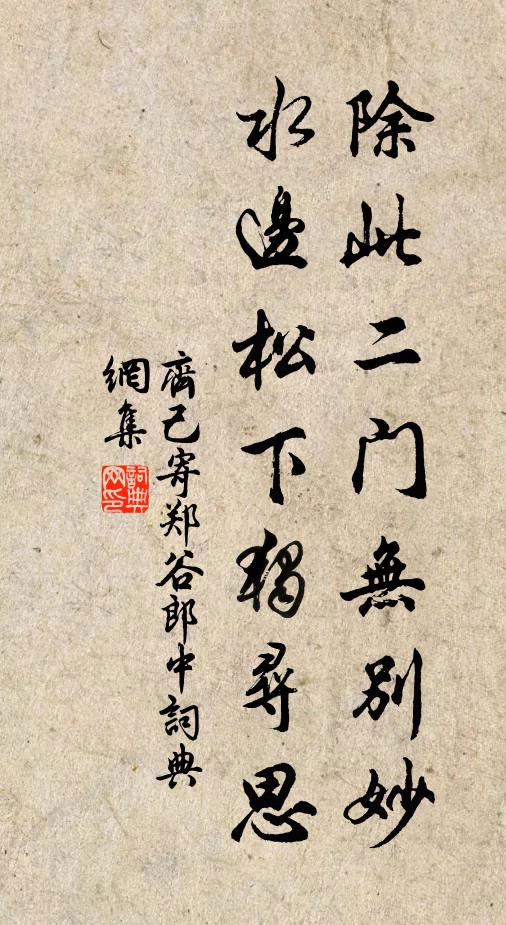 除此二门無别妙
水邊松下獨尋思
齊己寄郑谷郎中詞典
網集
詞典網印